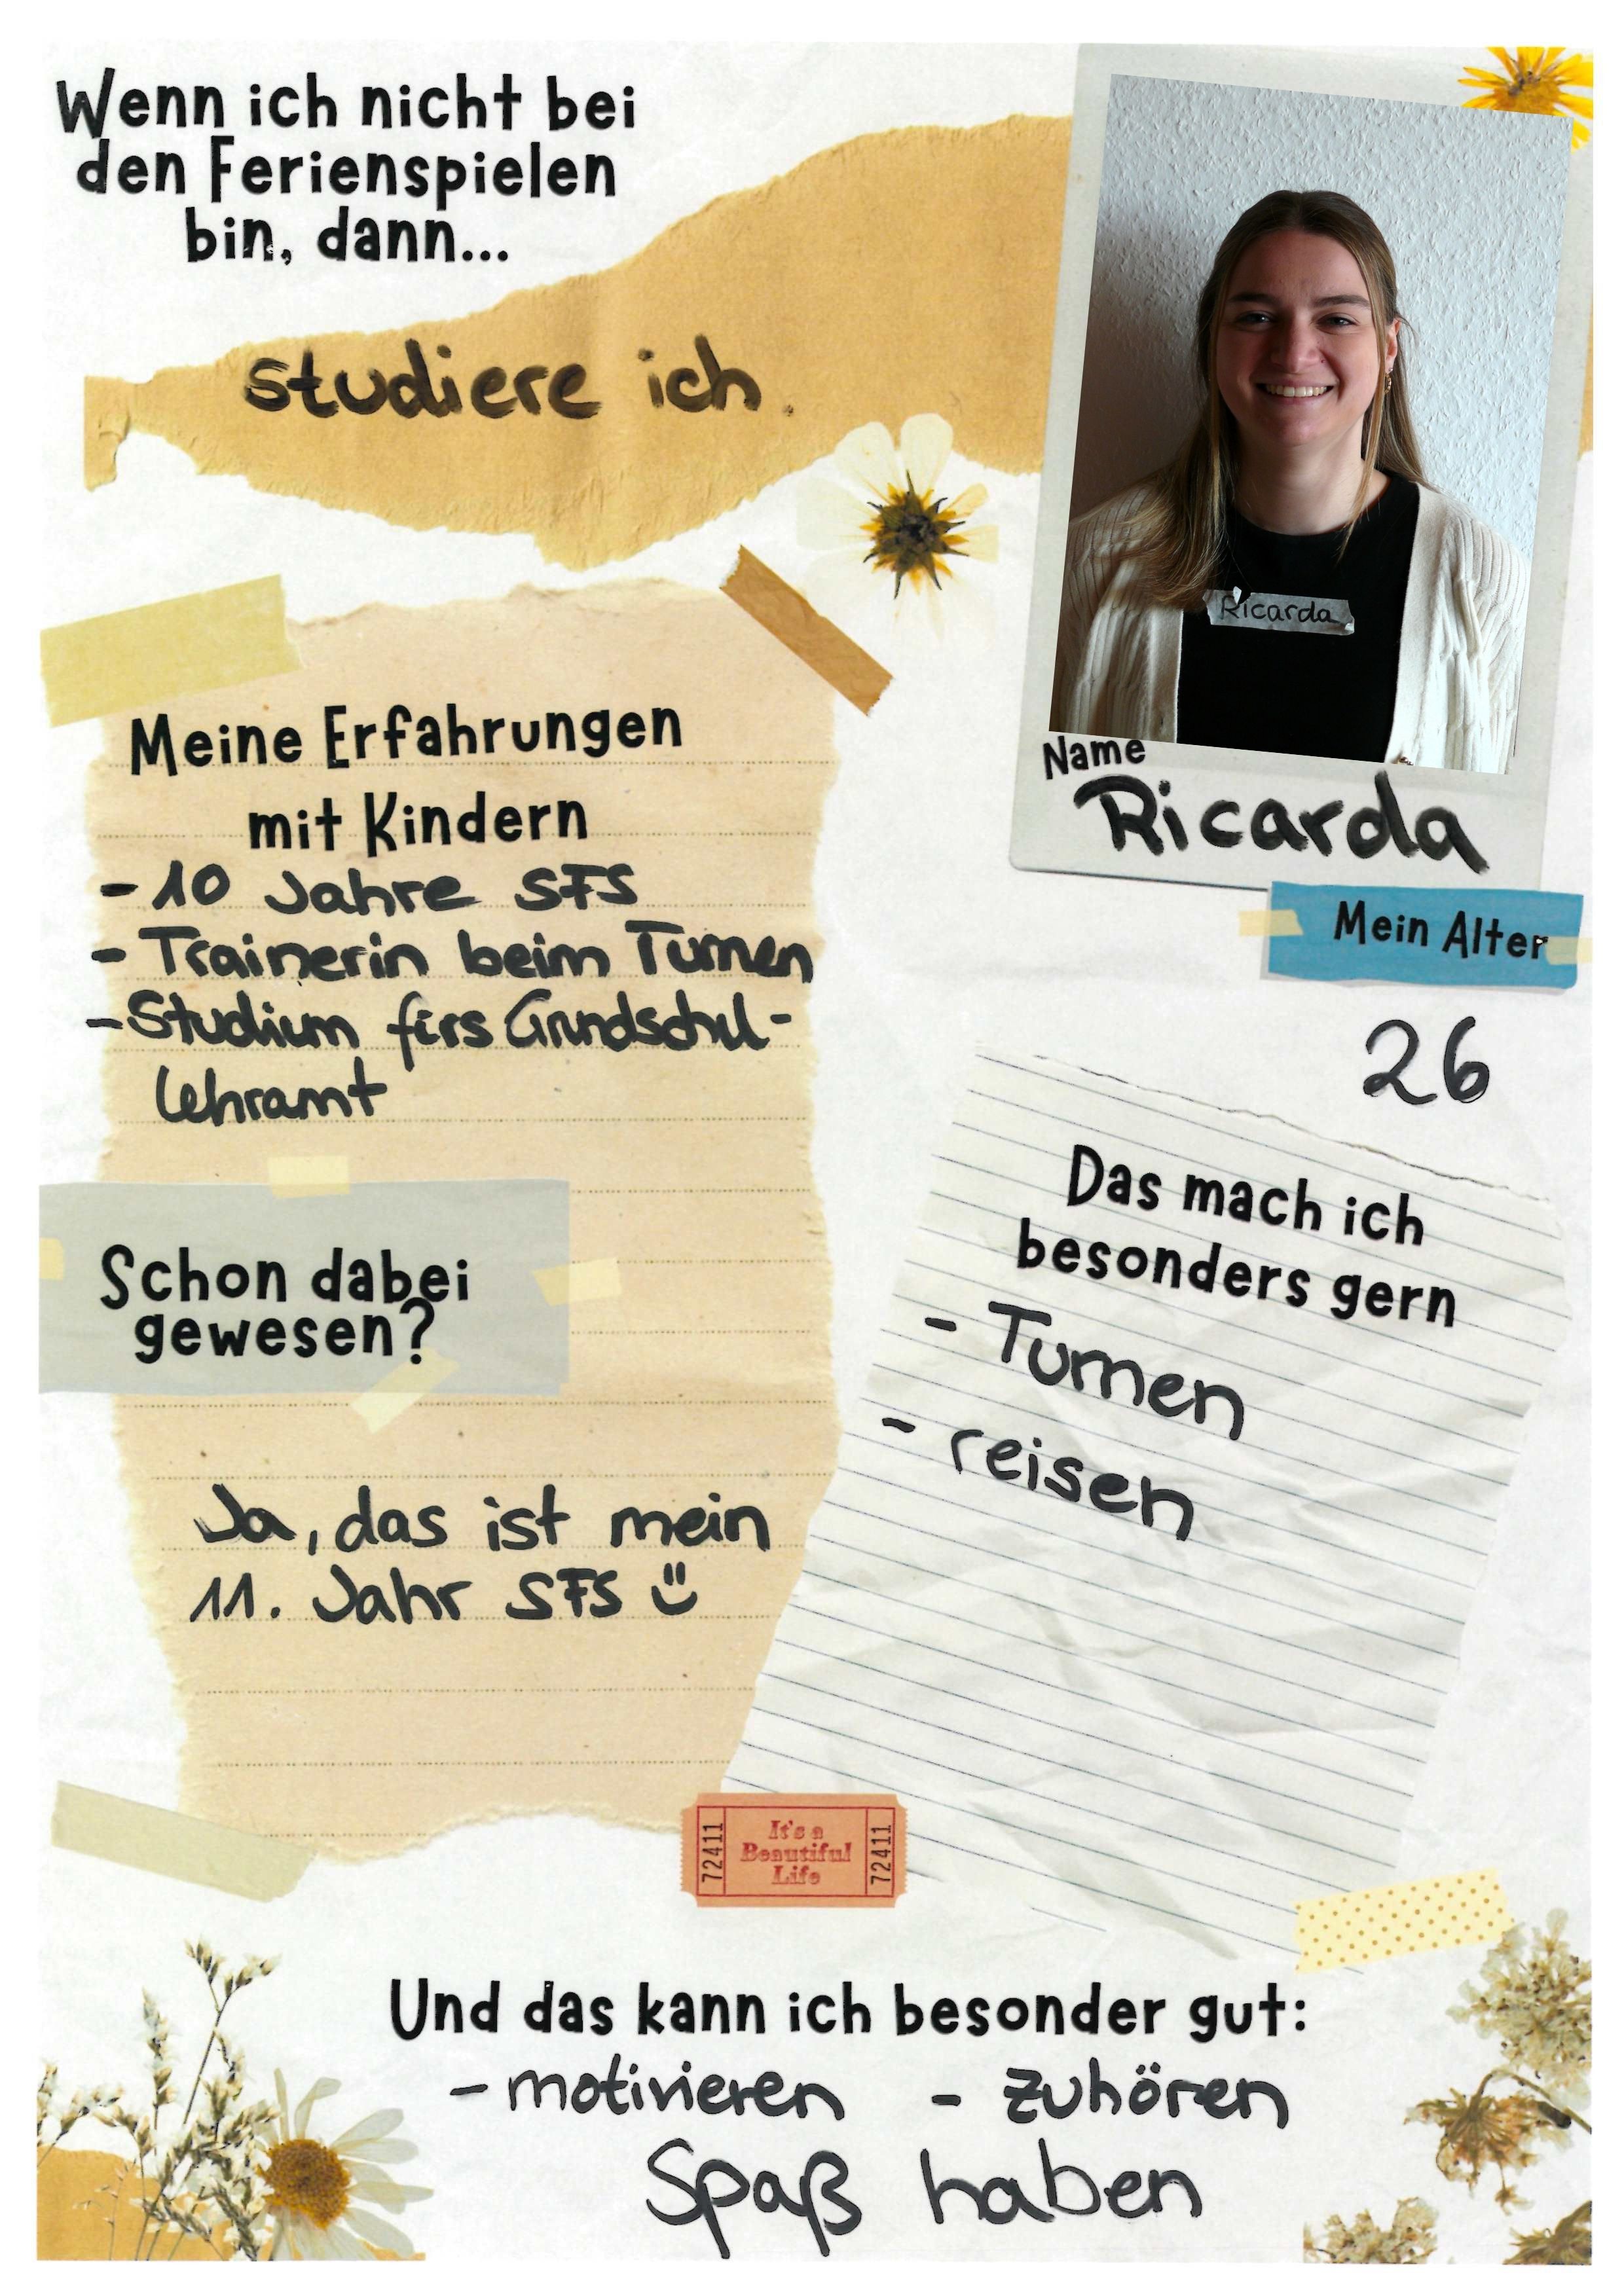 Wenn ich nicht bei
den Ferienspielen
bin, dann...
studiere ich.
Ricarda
Name
Ricarda
Mein Alter
26
Meine Erfahrungen
mit Kindern
- 10 Jahre SFS
- Trainerin beim Turnen
- Studium fürs Grundschul-
lehramt
Schon dabei
gewesen?
Ja, das ist mein
11. Jahr SFS ü
Das mach ich
besonders gern
- Turnen
- reisen
72411
It's a
Beautiful
Life
72411
Und das kann ich besonder gut:
- motivieren - zuhören
Spaß haben